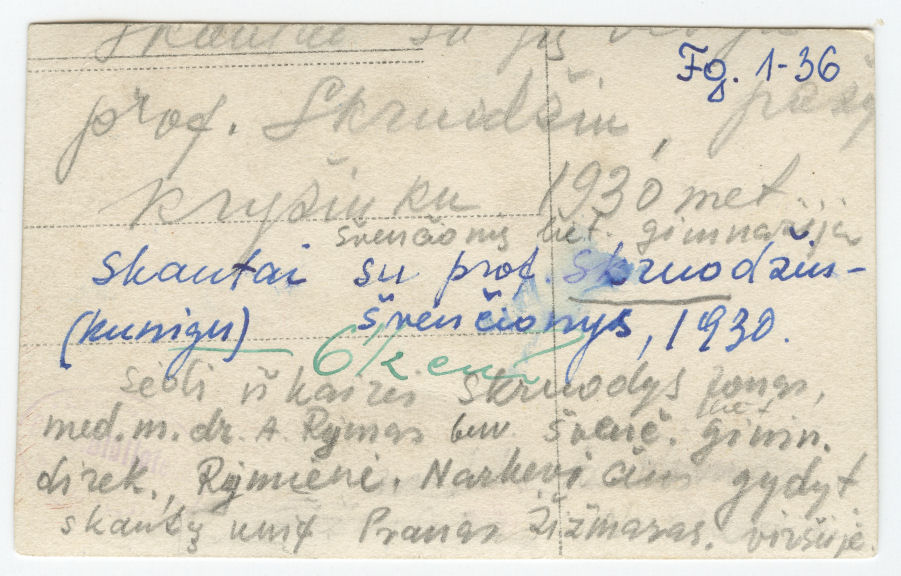 Skautai su jų
Fg. 1-36
prof. Skruidžiu,
kryžiuku 1930 met
Švenčionių liet. gimnazija
Skautai su prof. Skruodžiu-
(kunigu) Švenčionys, 1930.
6½ cm
sėdi iš kairės Skruodys Jonas,
med. m. dr. A. Rymas buv. Švenč. liet. gimn.
direk., Rymienė, Narkevičius gydyt
skautų unif Pranas Žižmaras. viršuje